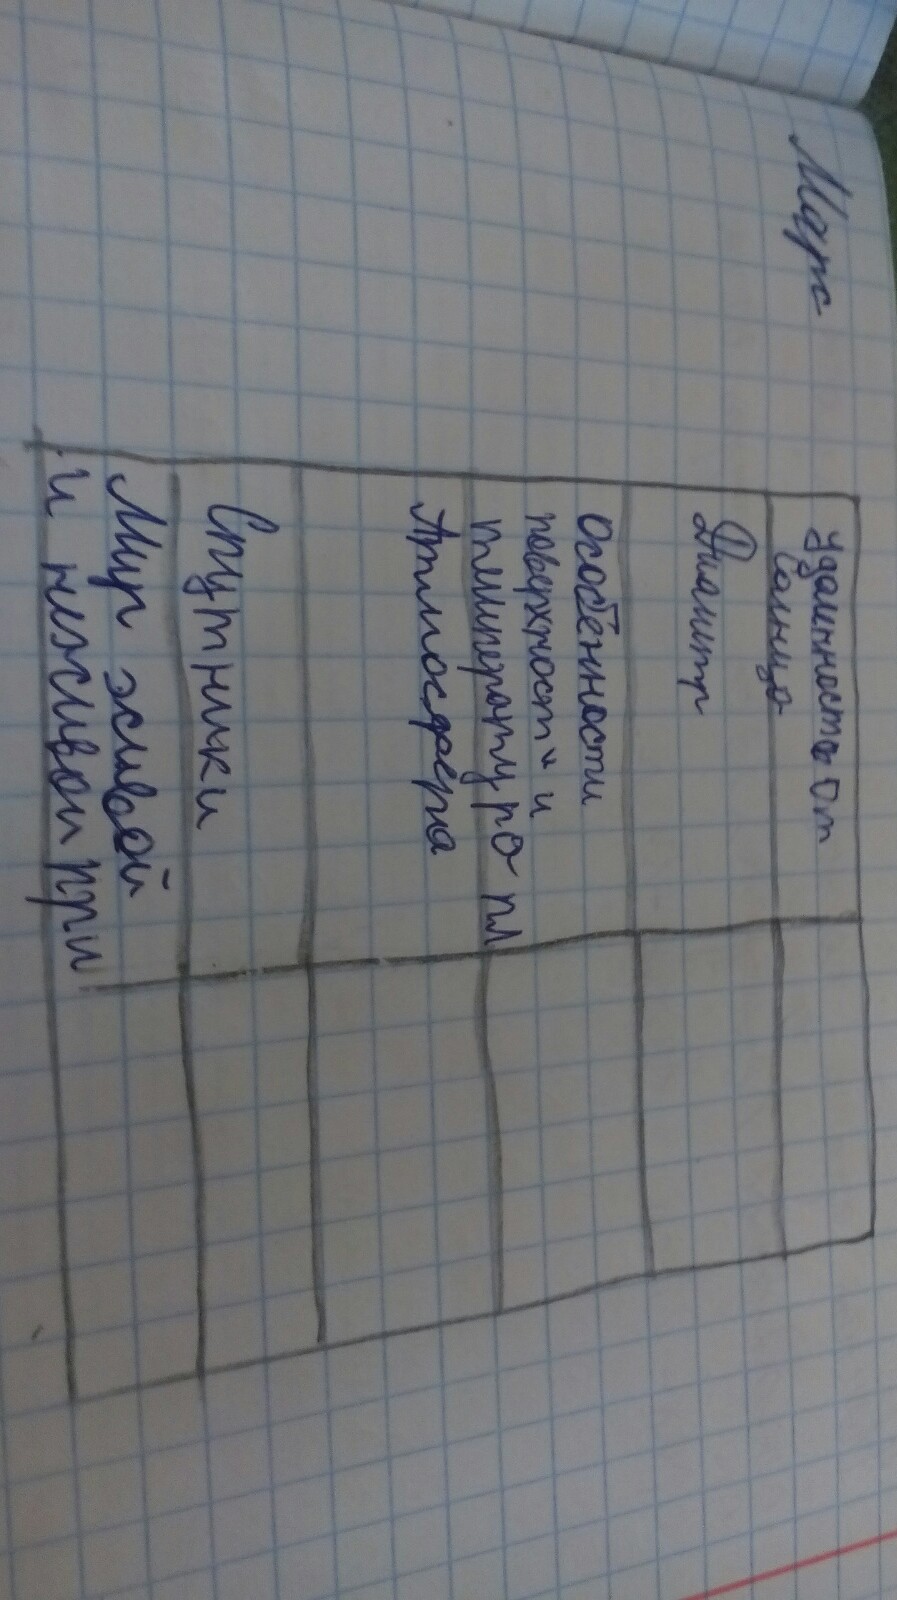 Марс
Удаленность от
Солнца
Диаметр
Особенности
поверхности и
температура пл
Атмосфера
Спутники
Мир живой
и неживой при